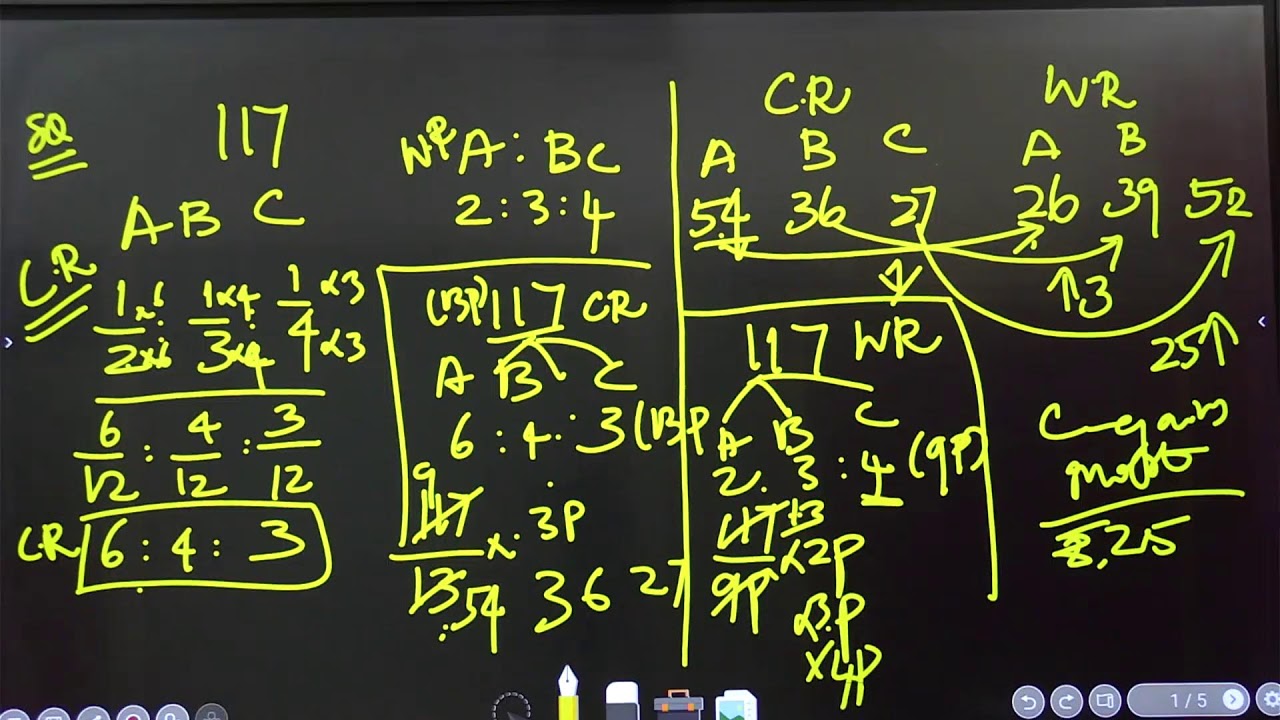 SQ
117
A B C
C.R
1x6 : 1x4 : 1 x3
2x6 3x4 4 x3
6 : 4 : 3
12 12 12
C.R 6 : 4 : 3
W.R A : B C
2 : 3 : 4
(13P) 117 CR
A B C
6 : 4 : 3 (13P
9
117 x 3P
13
54 36 27
C.R
A B C
54 36 27
W.R
A B
26 39 52
↑3
25↑
117 WR
A B C
2 : 3 : 4 (9P)
117 13
9P x2P
x3P
x4P
C gains
profit
25
1 / 5